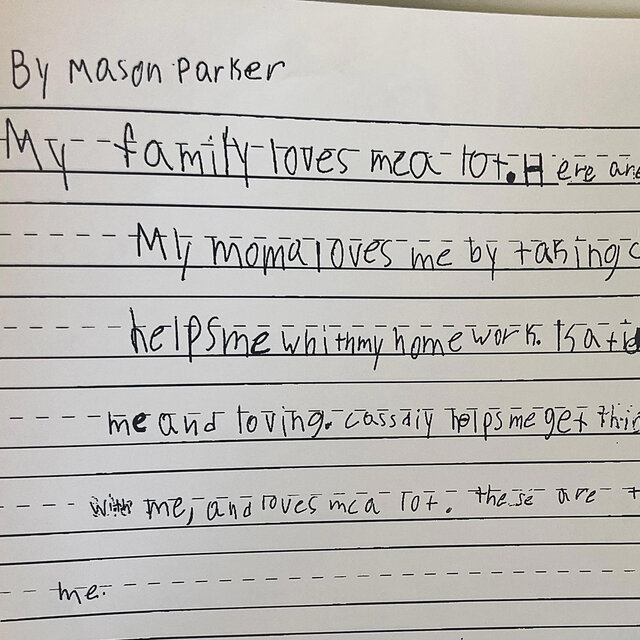 By Mason Parker
My family loves mea lot. Here are
My moma loves me by taking c
helps me whithmy home work. Isa tid
me and loving. Cassdiy helps me get thin
with me, and loves mea lot. these are t
me.